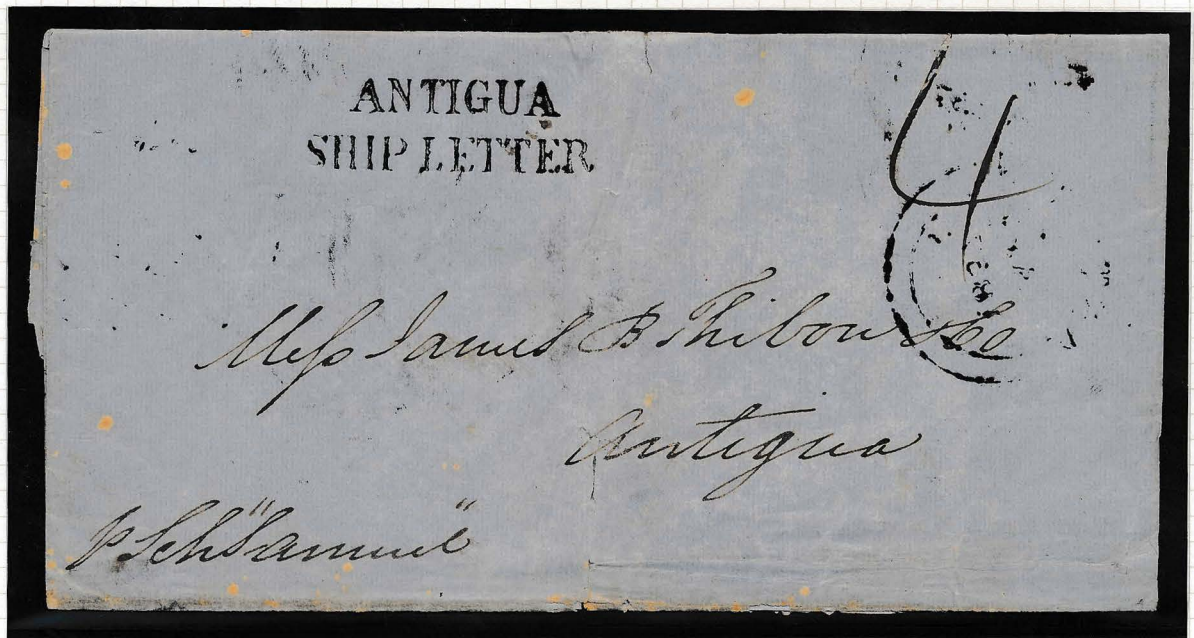 ANTIGUA
SHIP LETTER
4
Mess James B Thibou & Co
Antigua
p Sch "Samuel"